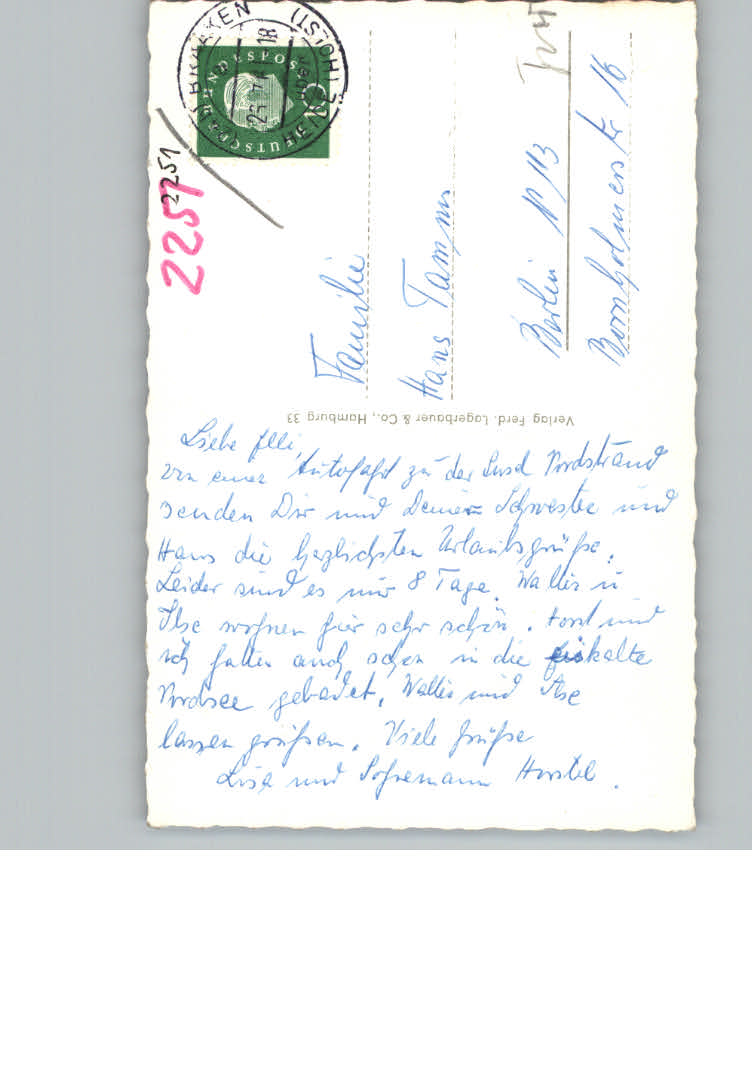 Liebe Elli,
von einer Autofahrt zu der Insel Nordstrand
senden Dir und Deiner Schwester und
Hans die herzlichsten Urlaubsgrüße.
Leider sind es nur 8 Tage. Walter u
Ilse wohnen hier sehr schön. Horst und
ich hatten auch schon in die eiskalte
Nordsee gebadet. Walter und Ilse
lassen grüßen. Viele Grüße
Lisa und
Verlag Ferd. Lagerbauer & Co., Hamburg 33
Familie
Hans Tamm
Berlin N 113
Bornholmerstr 16
DEUTSCHE BUNDESPOST
8
(HOLST)
18
2251
2251